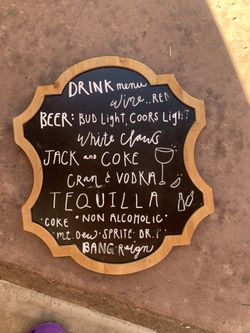 DRINK menu
wine..RED
BEER: BUD LIGHT, COORS LIGHT
White Claws
JACK and COKE
CRAN & VODKA
TEQUILLA
COKE • NON ALCOHOLIC •
mt. DEW • SPRITE • DR. P
BANG Reign